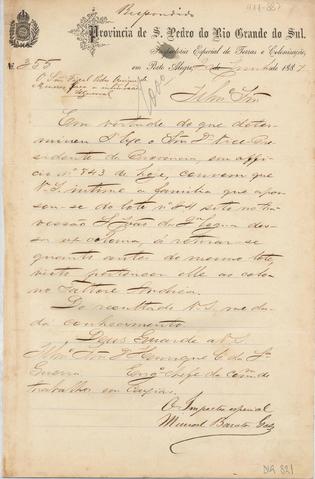 Respondido
Provincia de S. Pedro do Rio Grande do Sul.
Inspectoria Especial de Terras e Colonisação,
em Porto Alegre, de Junho de 1887
Nº 255
Illmo Snr
Em virtude do que deter-
minou S. Exc. o Snr Dr Vice Pre-
sidente da Provincia, em offi-
cio nº 943 de hoje, convem que
V. S. intime a familia que apos-
sou-se do lote nº 84 sito na tra-
vessão S. João da 2ª legua des-
sa ex colonia, á retirar-se
quanto antes do mesmo lote,
visto pertencer elle ao colo-
no Andréa.
Do resultado V. S. me da-
rá conhecimento.
Deus Guarde a V. S.
Illmo Snr Dr Henrique C. da
Engº Chefe da comm. de
trabalhos em Caxias.
O Inspector especial
Manoel Barata
DIG 821